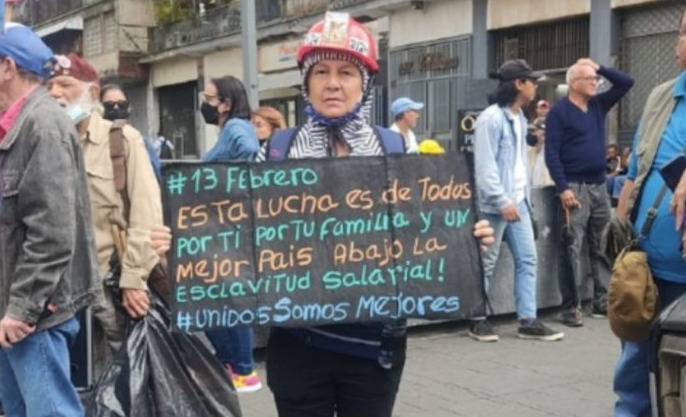 #13 Febrero
Esta Lucha es de Todos
por ti por tu familia y un
Mejor Pais Abajo La
Esclavitud Salarial!
#Unidos Somos Mejores